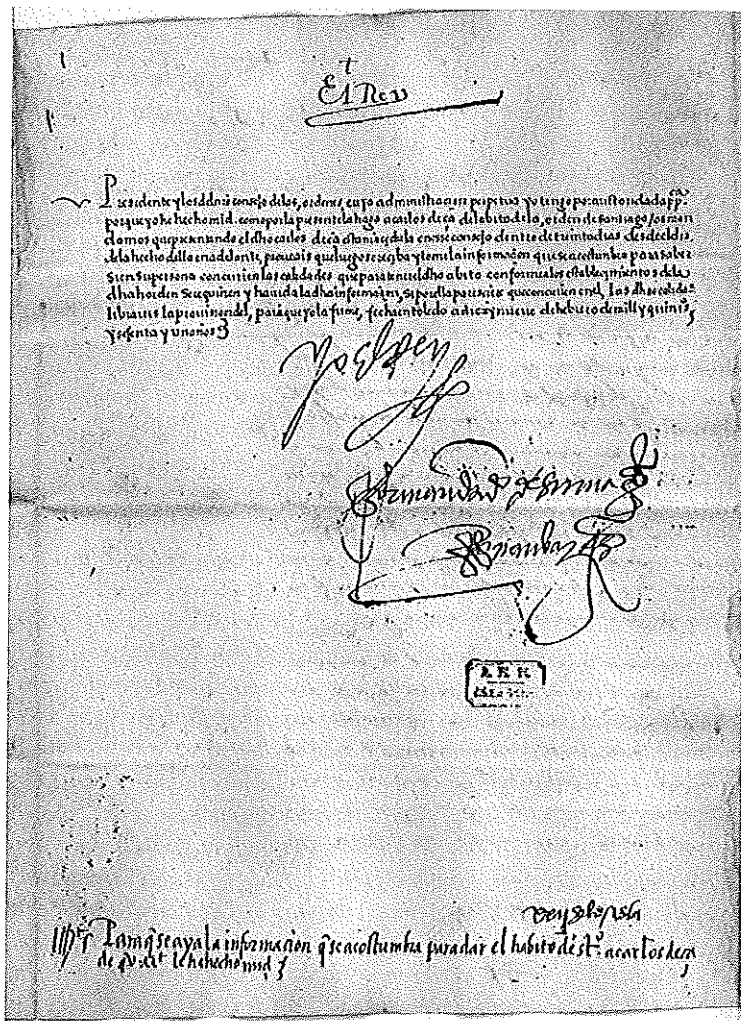 †
El Rey
Presidente y los del mi consejo de las ordenes, cuya administracion perpetua yo tengo por autoridad app.ca
porque yo he hecho md. como por la presente la hago a carlos de çea del abito de la orden de santiago, os man
damos que presentando el dho carlos de çea ante vos y de la en ese consejo dentro de treinta dias desde el dia
de la hecho della en addelante, proveais que luego se resciba y tome la informacion que se acostumbra para saber
si en su persona concurren las calidades que para tener el dho abito conforme a los establecimientos de la
dha horden se requieren y havida la dha informacion, si por ella paresciere que concurren en el las dhas calidades
librareis la provision del, para que yo la firme, fecha en toledo a diez y nueve de hebrero de mill y quinios
y sesenta y un años
Yo El Rey
Por mandado de su mag
Fran.co
A H N
Para q se aya la informacion q se acostumbra para dar el habito de st.o a carlos de çea
de q v. mt le ha hecho md